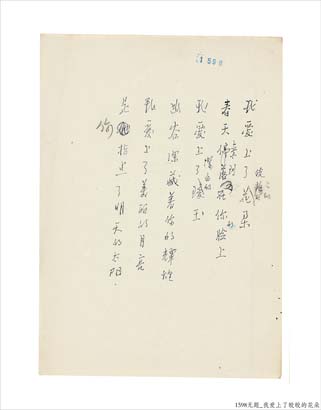 1598
我爱上了皎皎的花朵
春天在你脸上
我爱上了玉
幽谷深藏着你的辉煌
我爱上了美丽的月亮
是你指点了明天的太阳
1598无题_我爱上了皎皎的花朵